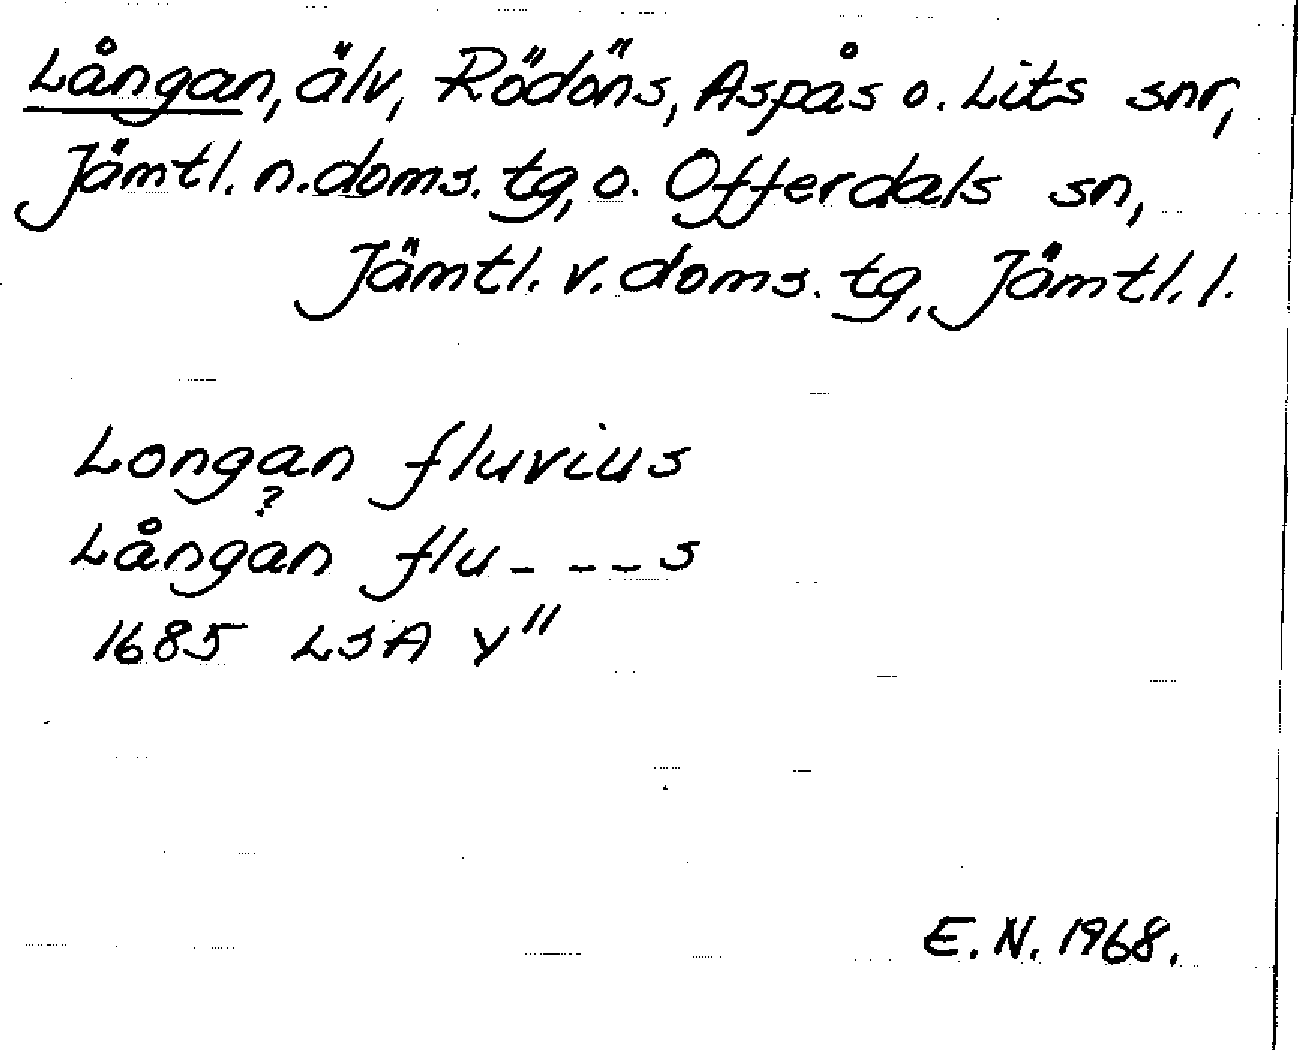 Långan, älv, Rödöns, Aspås o. Lits snr,
Jämtl. n. doms. tg, o. Offerdals sn,
Jämtl. v. doms. tg, Jämtl. l.
Longan fluvius
?
Långan flu- - - - s
1685 LSA Y"
E. N. 1968.